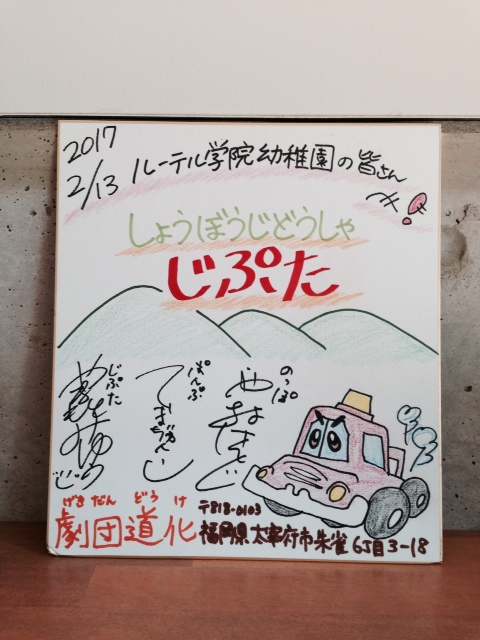 2017
2/13 ルーテル学院幼稚園の皆さん
へ!
しょうぼうじどうしゃ
じぷた
のっぽ
ぱんぷ
じぷた
げきだん どうけ
劇団道化 〒818-0103
福岡県太宰府市朱雀6丁目3-18